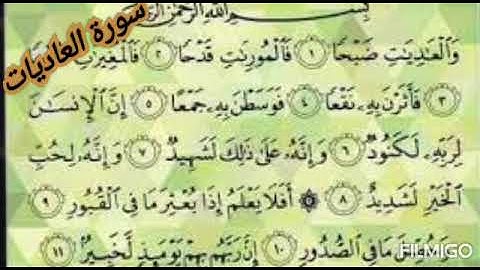 سورة العاديات
بِسْمِ اللَّهِ الرَّحْمَٰنِ
وَالْعَٰدِيَٰتِ ضَبْحًا ١ فَالْمُورِيَٰتِ قَدْحًا ٢ فَالْمُغِيرَٰتِ
٣ فَأَثَرْنَ بِهِۦ نَقْعًا ٤ فَوَسَطْنَ بِهِۦ جَمْعًا ٥ إِنَّ الْإِنسَٰنَ
لِرَبِّهِۦ لَكَنُودٌ ٦ وَإِنَّهُۥ عَلَىٰ ذَٰلِكَ لَشَهِيدٌ ٧ وَإِنَّهُۥ لِحُبِّ
الْخَيْرِ لَشَدِيدٌ ٨ ۞ أَفَلَا يَعْلَمُ إِذَا بُعْثِرَ مَا فِي الْقُبُورِ ٩
وَحُصِّلَ مَا فِي الصُّدُورِ ١٠ إِنَّ رَبَّهُم بِهِمْ يَوْمَئِذٍ لَّخَبِيرٌ ١١
FILMIGO